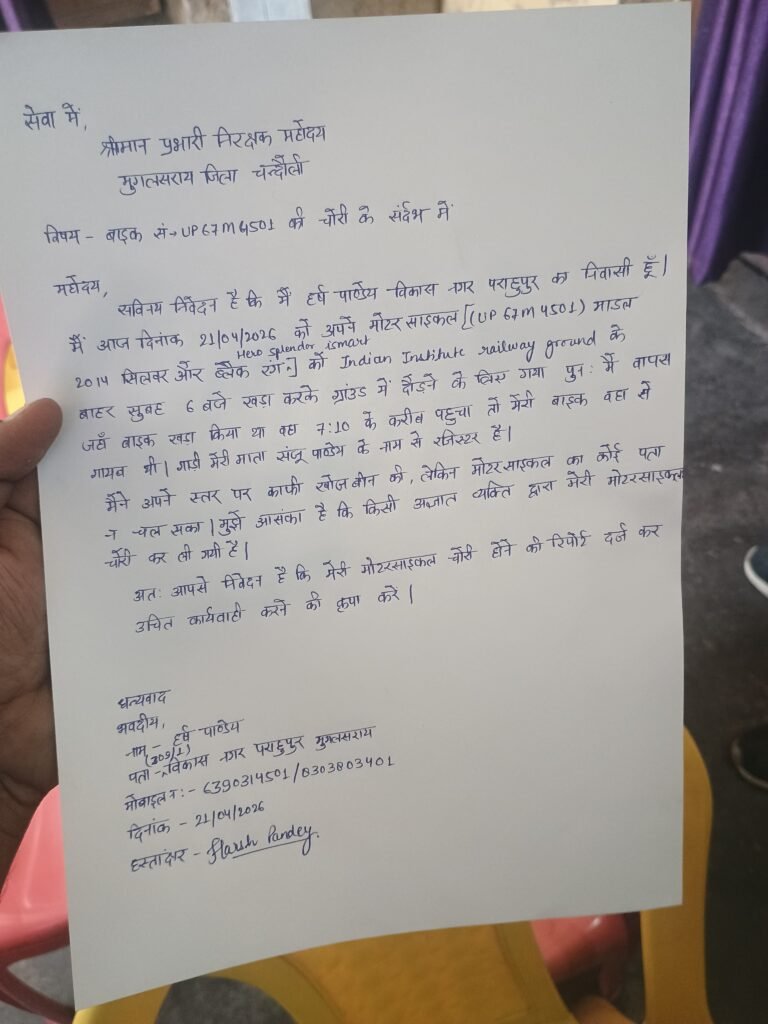 सेवा में,
श्रीमान प्रभारी निरक्षक महोदय
मुगलसराय जिला चन्दौली
विषय - बाइक सं→ UP67M4501 की चोरी के संर्दभ में
महोदय,
सविनय निवेदन है कि मैं हर्ष पाण्डेय विकास नगर पराहुपुर का निवासी हूँ।
मैं आज दिनांक 21/04/2026 को अपने मोटरसाइकल [(UP 67M4501) माडल
Hero splendor ismart
2014 सिलवर और ब्लैक रंग.] को Indian Institute railway ground के
बाहर सुबह 6 बजे खड़ा करके ग्रांउड में दौड़ने के लिए गया पुन: मैं वापस
जहाँ बाइक खड़ा किया था वहा 7:10 के करीब पहुचा तो मेरी बाइक वहा से
गायब थी। गाड़ी मेरी माता संजू पाण्डेय के नाम से रजिस्टर है।
मैंने अपने स्तर पर काफी खोजबीन की, लेकिन मोटरसाइकल का कोई पता
न चल सका। मुझे आसंका है कि किसी अज्ञात व्यक्ति द्वारा मेरी मोटरसाइकल
चोरी कर ली गयी है।
अत: आपसे निवेदन है कि मेरी मोटरसाइकल चोरी होने की रिपोर्ट दर्ज कर
उचित कार्यवाही करने की कृपा करे।
धन्यवाद
भवदीय,
नाम - हर्ष पाण्डेय
(309/1)
पता - विकास नगर पराहुपुर मुगलसराय
मोबाइल न:- 6390314501/8303803401
दिनांक - 21/04/2026
हस्ताक्षर - Harsh Pandey.